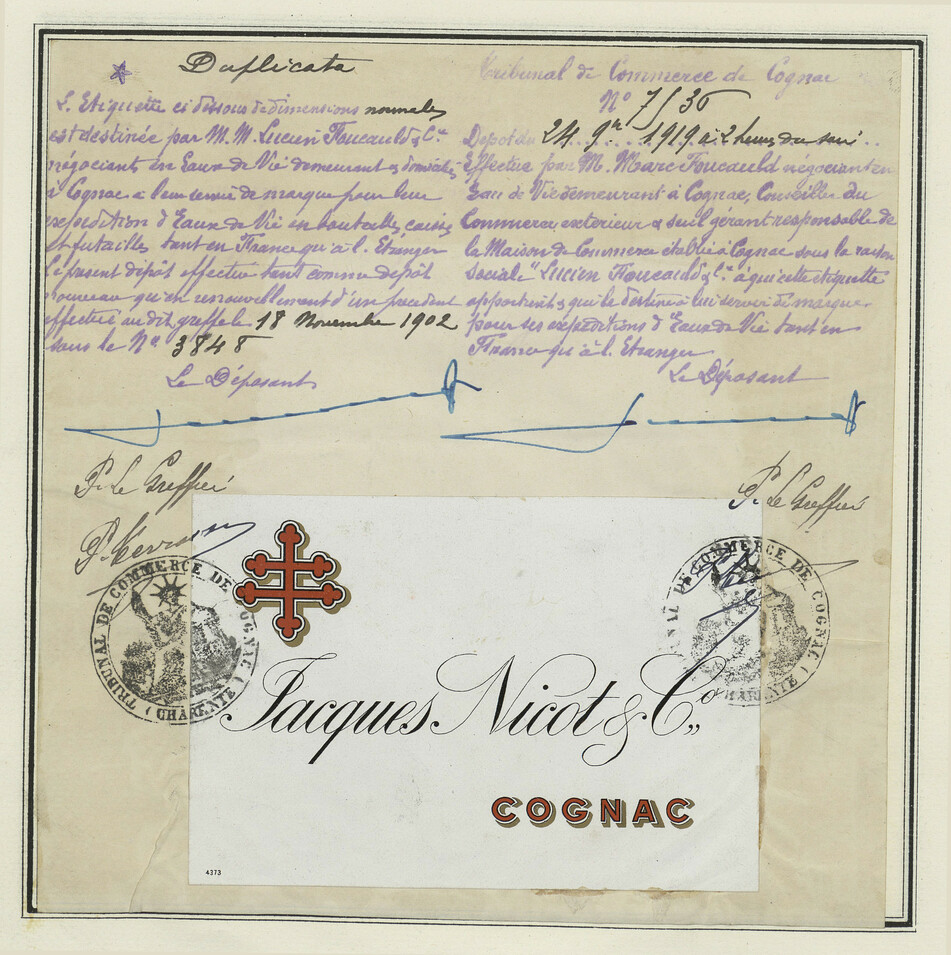 Duplicata
L'Etiquette ci dessous de dimensions normales
est destinée par M.M. Lucien Foucauld & Cie
négociants en Eaux de Vie demeurant et domiciliés
à Cognac a leur servir de marque pour leur
expédition d'Eaux de Vie en bouteilles, caisses
et futailles tant en France qu'à l'Etranger
le présent dépôt effectué tant comme dépôt
nouveau qu'en renouvellement d'un précédent
effectué au dit greffe le 18 Novembre 1902
sous le No 3848
Le Déposant
P. Le Greffier
Tribunal de Commerce de Cognac
No 7/36
Depot du 24 9bre 1919 à 2 heures du soir
Effectué par M. Marc Foucauld négociant en
Eau de Vie demeurant à Cognac, Conseiller du
Commerce extérieur & seul gérant responsable de
la Maison de Commerce établie à Cognac sous la raison
social "Lucien Foucauld & Cie" à qui cette étiquette
appartient & qui le destine à lui servir de marque
pour ses expéditions d'Eaux de Vie tant en
France qu'à l'Etranger
Le Déposant
P. Le Greffier
TRIBUNAL DE COMMERCE DE COGNAC (CHARENTE)
TRIBUNAL DE COMMERCE DE COGNAC (CHARENTE)
Jacques Nicot & Co.,
COGNAC
4373